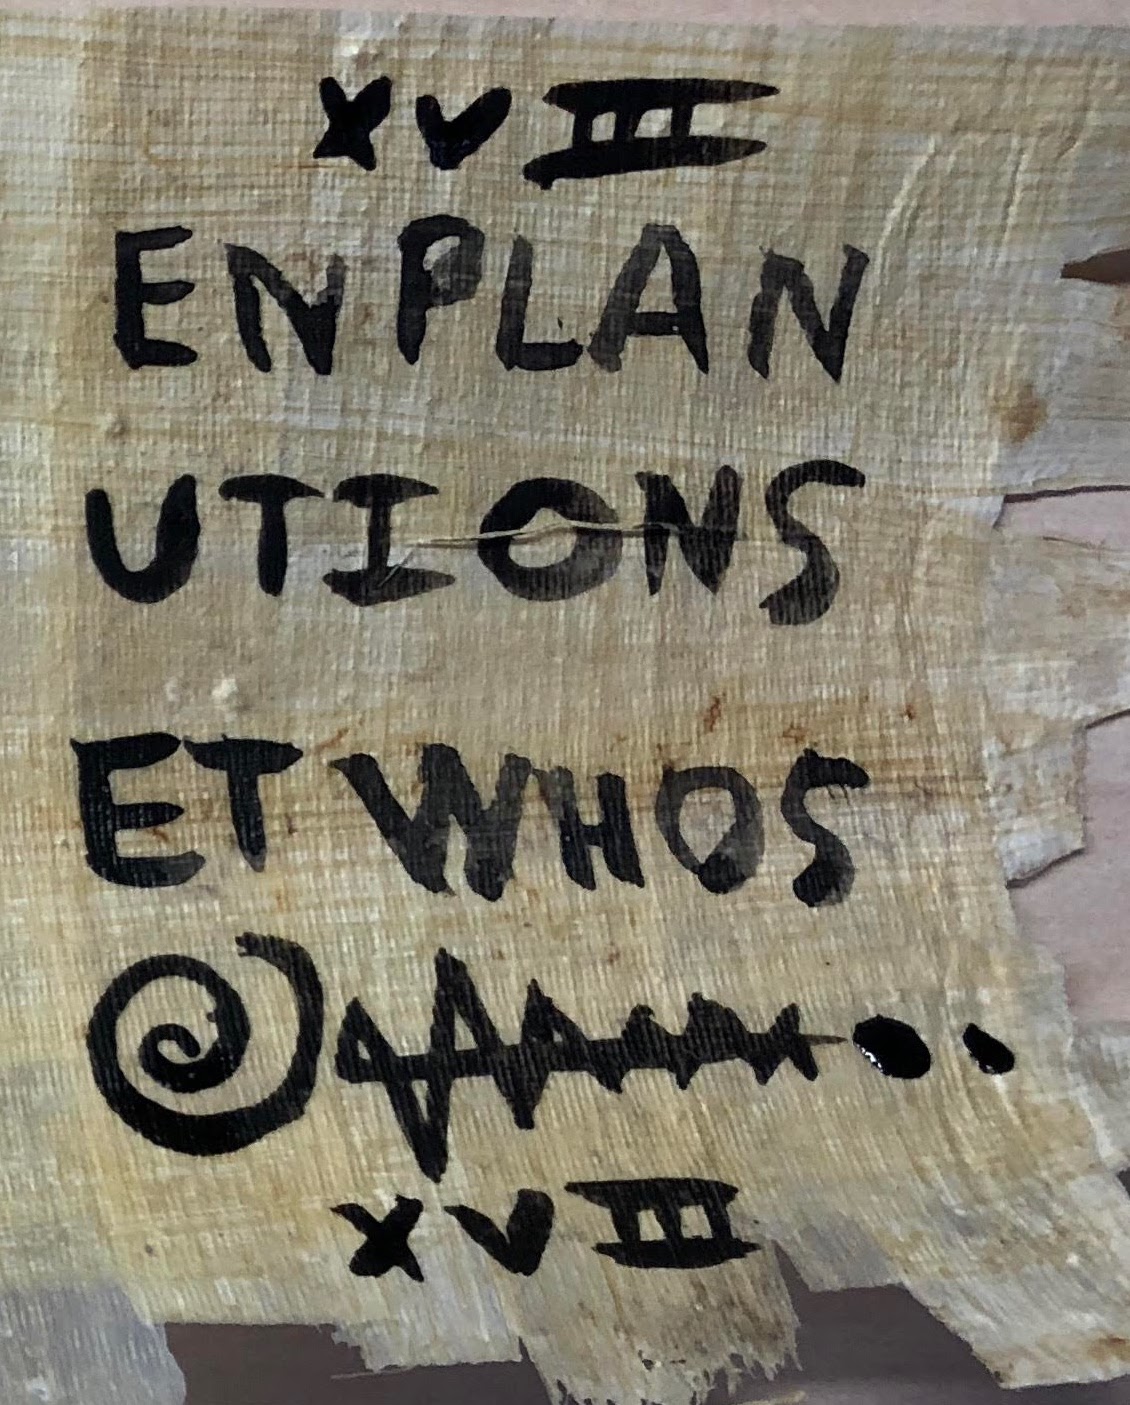 XVIII
ENPLAN
UTIONS
ET WHOS
XVIII